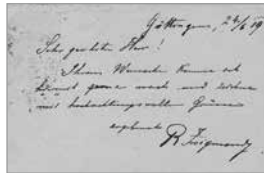 Göttingen, 24/6 19
Sehr geehrter Herr!
Ihrem Wunsche komme ich
hiemit gerne nach und zeichne
mit hochachtungsvollen Grüssen
ergebenst
R Zsigmondy